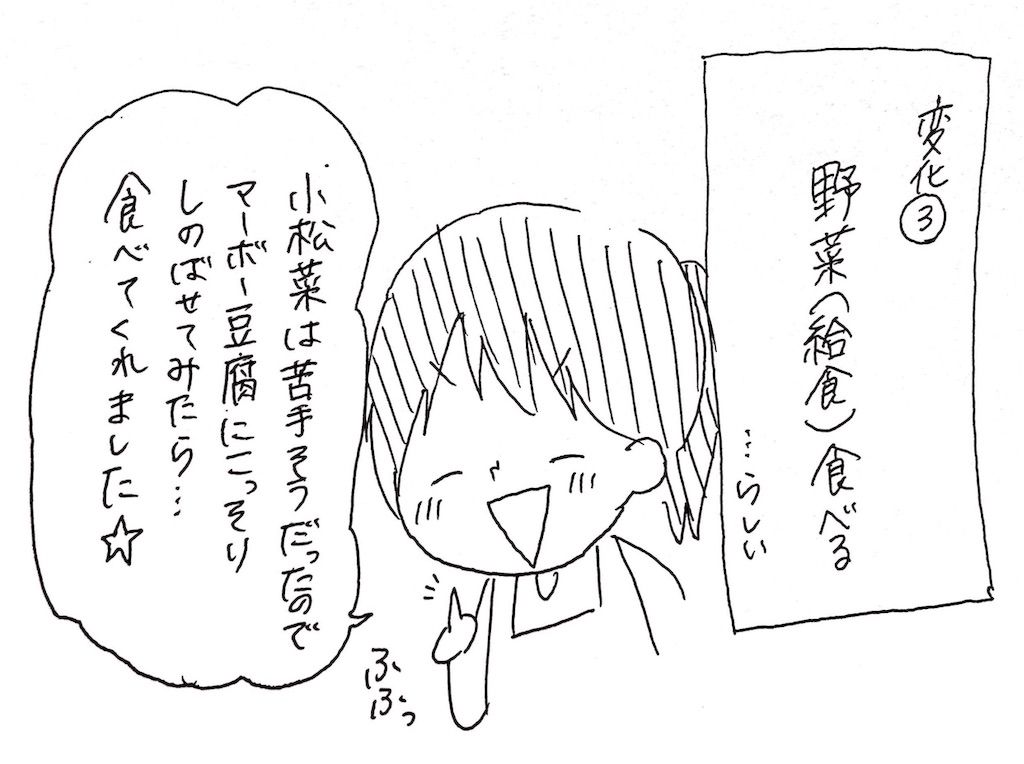 変化③
野菜(給食)食べる
…らしい
小松菜は苦手そうだったので
マーボー豆腐にこっそり
しのばせてみたら…
食べてくれました☆
ふふっ